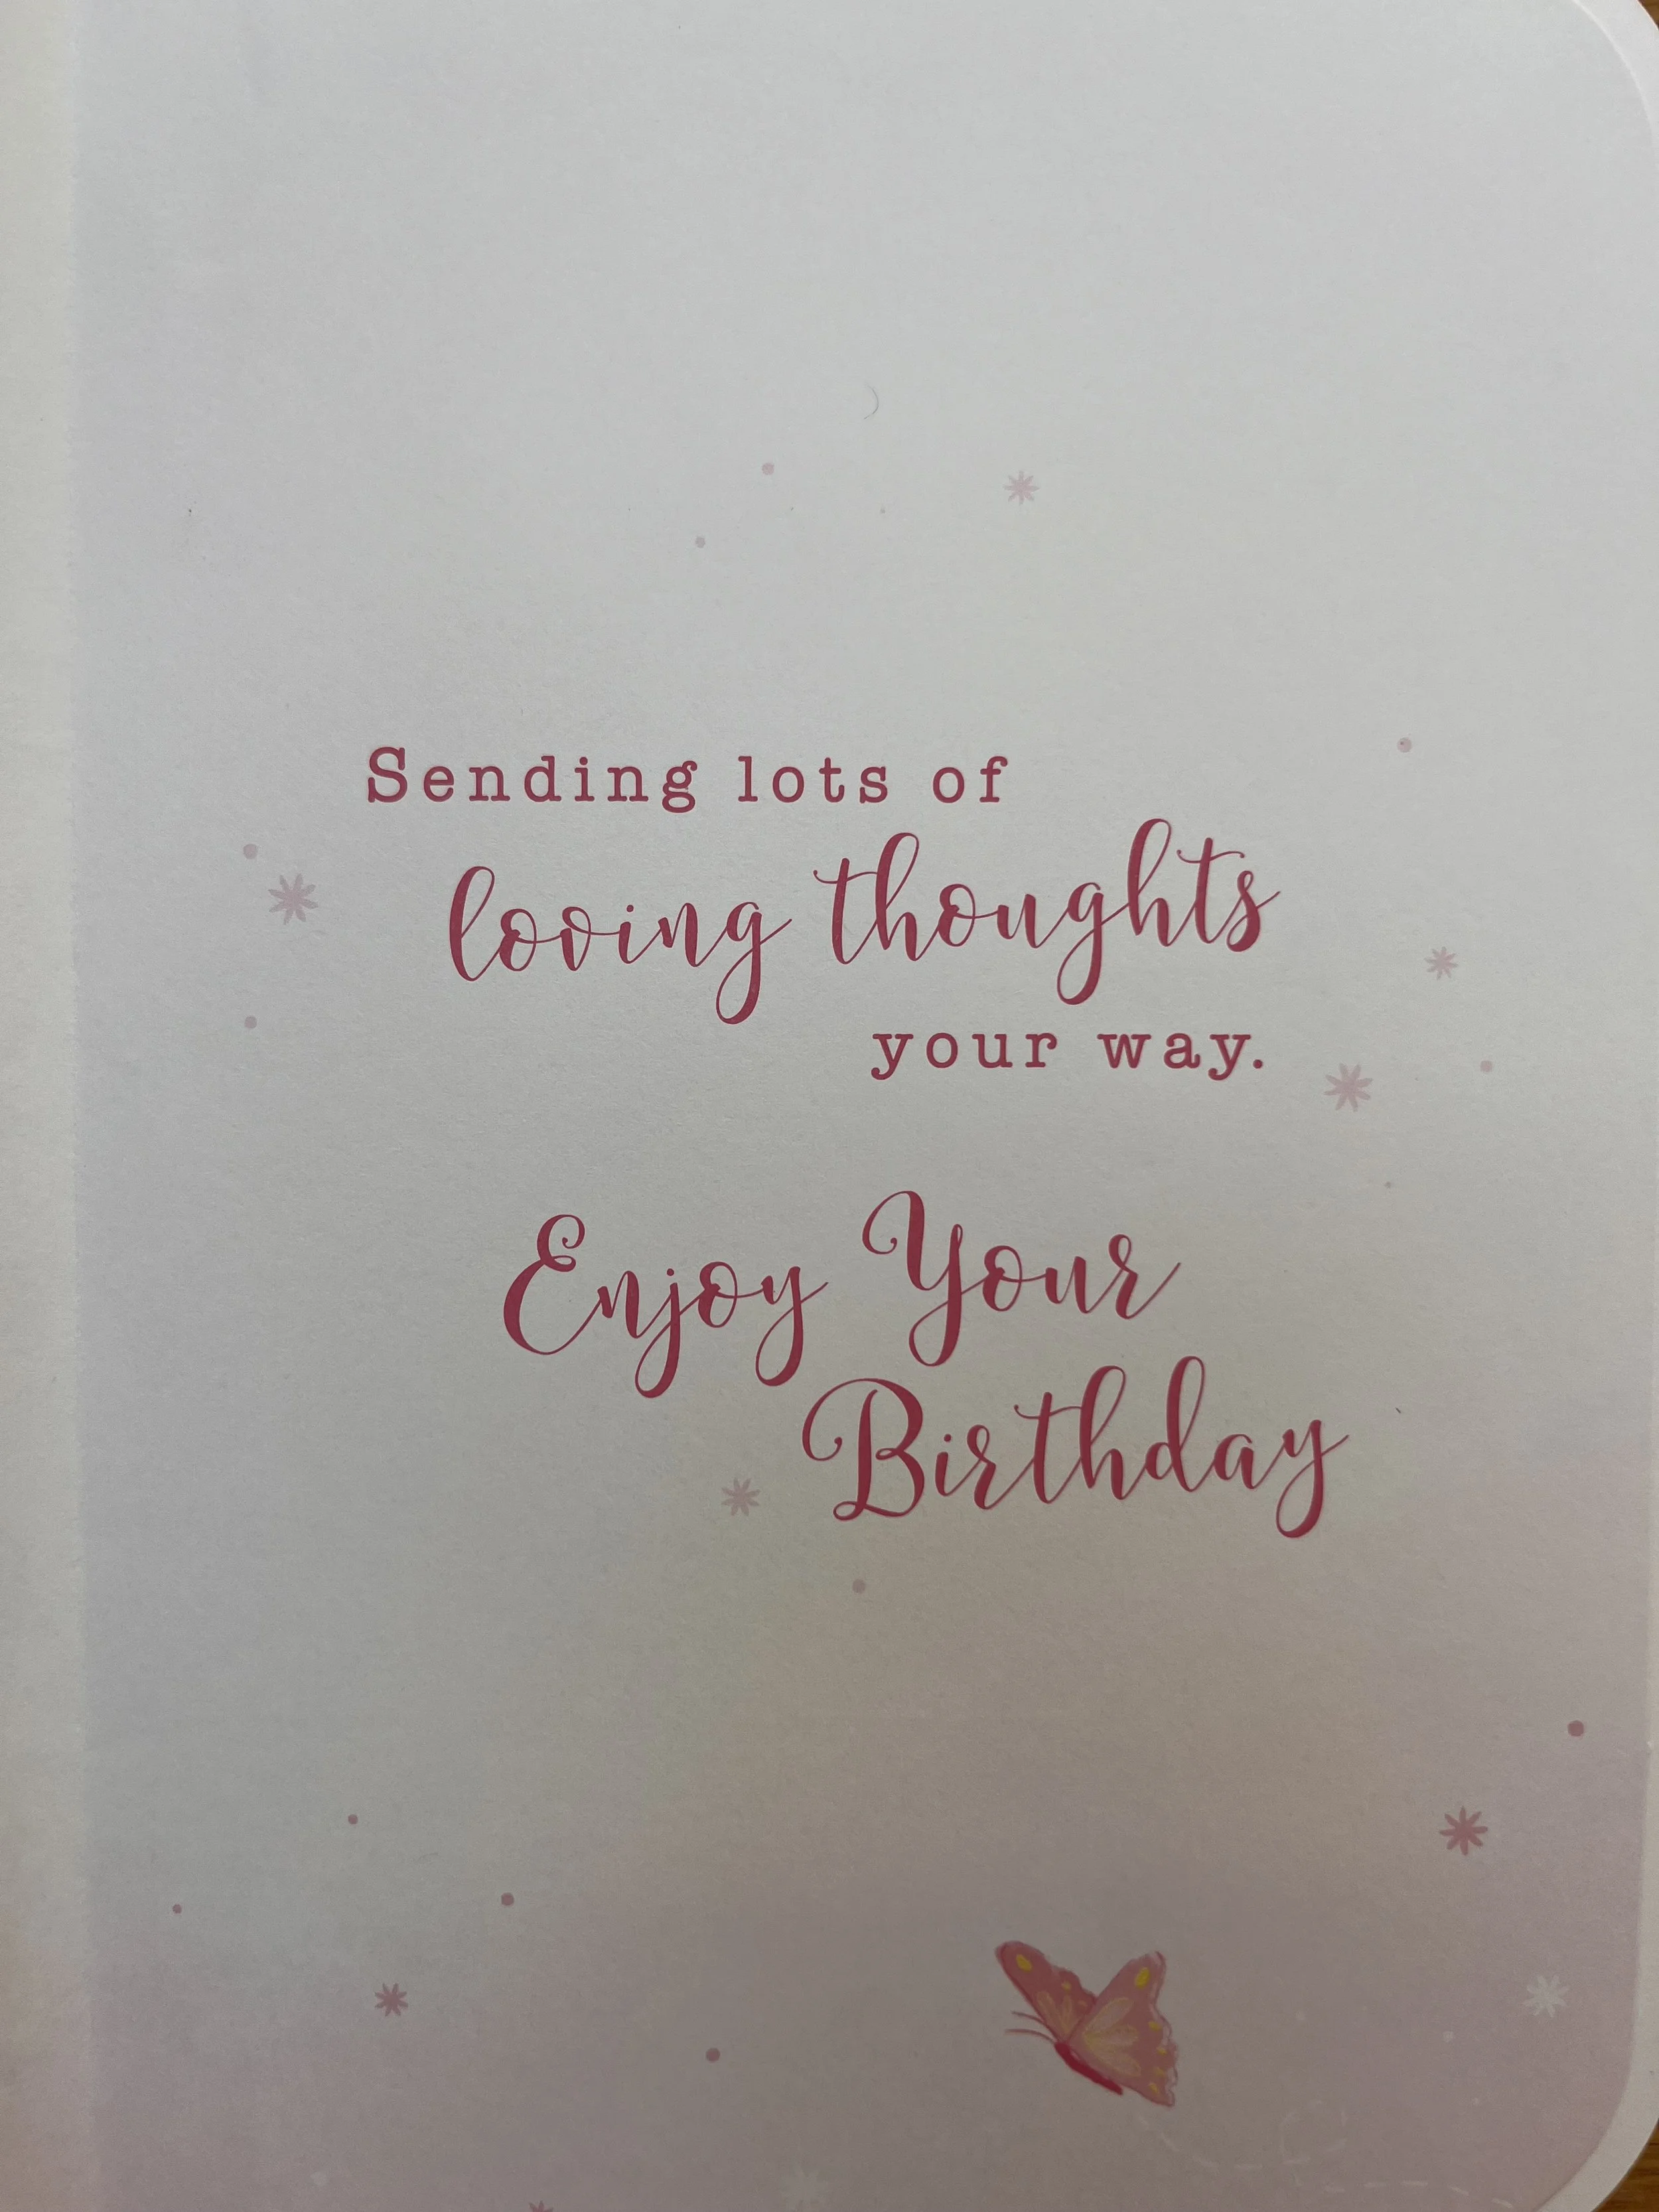 Sending lots of
loving thoughts
your way.
Enjoy Your
Birthday